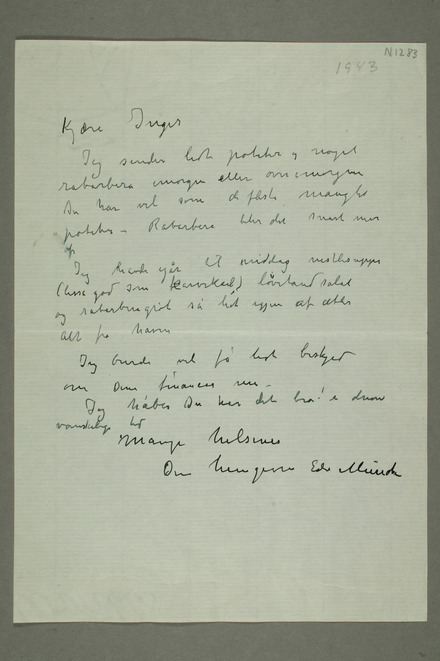 N1283
1943
Kjære Inger
Jeg sender lidt poteter og noget
rabarbera imorgen eller overimorgen
Du har vel som de fleste mangel
poteter – Rabarbera blir det snart mer
af
Jeg havde igår til middag neslesuppe
(lisså god som karvekål) løvetandsalat
og rabarbragrøt så lidt igjen af
alt fra haven
Jeg burde vel få lidt beskjed
om Dine finanser nu –
Jeg håber Du har det bra i denne
vanskelige tid
Mange hilsener
Din hengivne Edv Munch